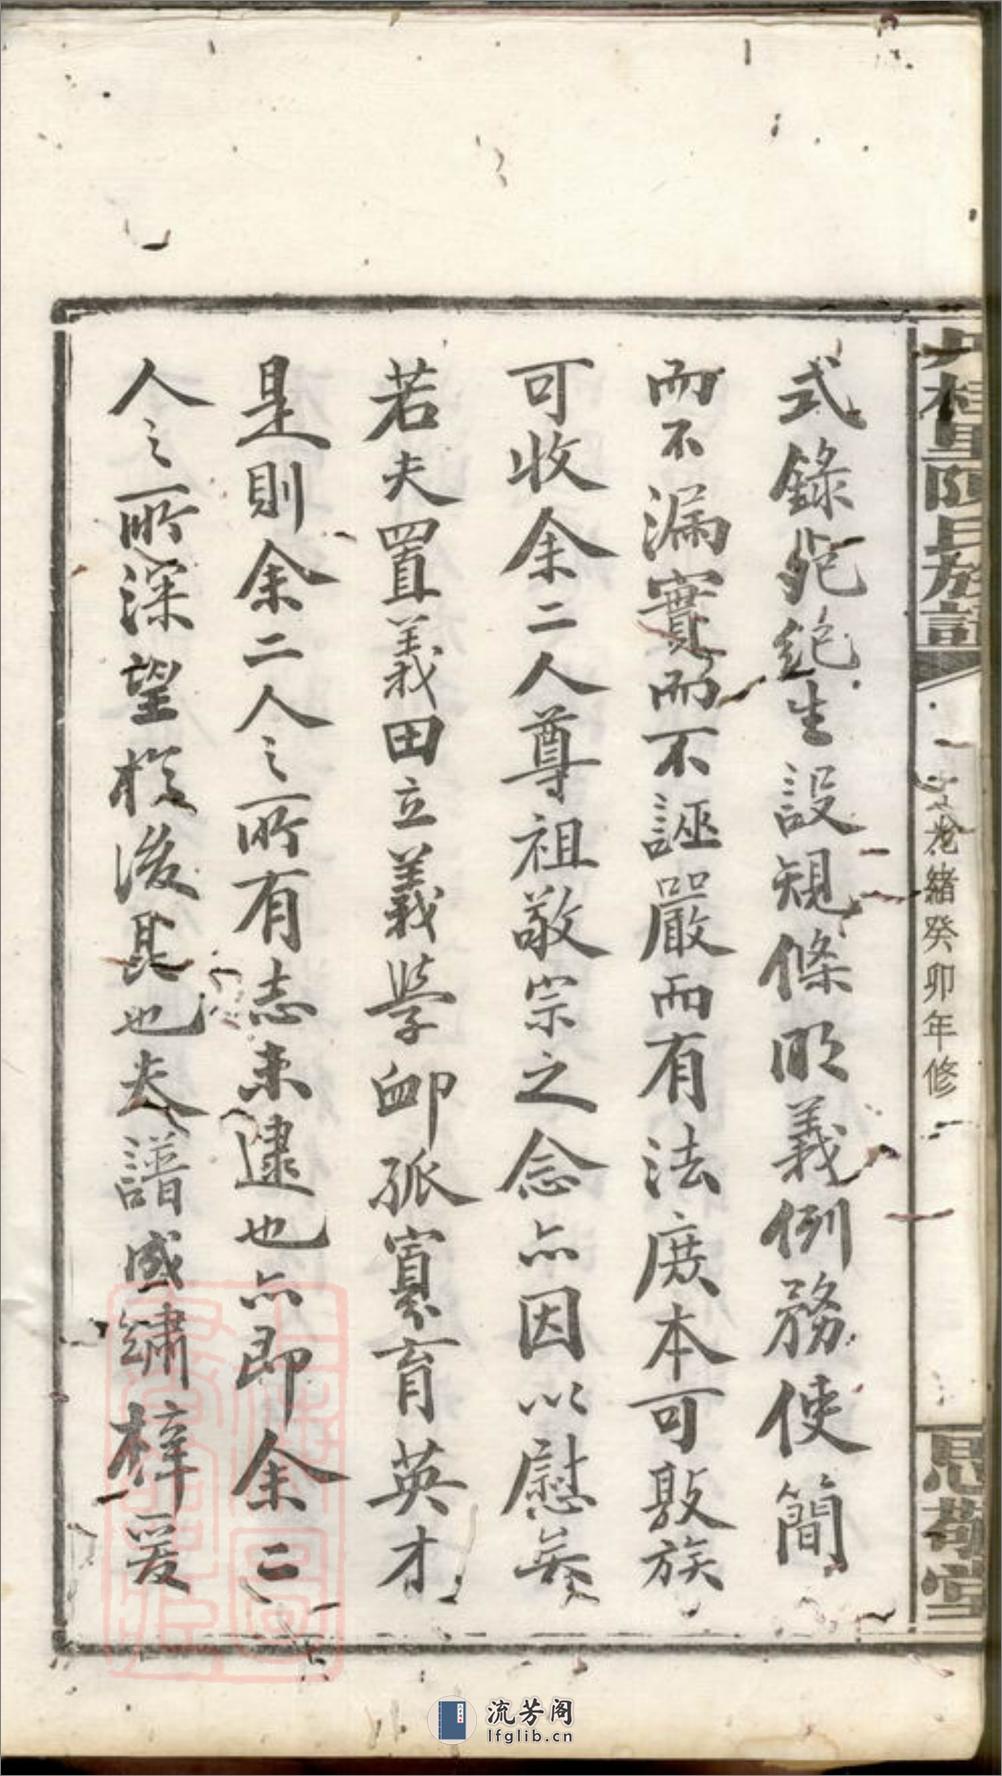 桂里陳氏族譜
光緒癸卯年修
思敬堂
式錄死絕生設規條明義例務使簡
而不漏實而不誣嚴而有法庶本可敦族
可收余二人尊祖敬宗之念亦因以慰矣
若夫置義田立義學卹孤寡育英才
是則余二人之所有志未逮也亦即余二
人之所深望於後昆也夫譜成繡梓爰
流芳阁
lfglib.cn